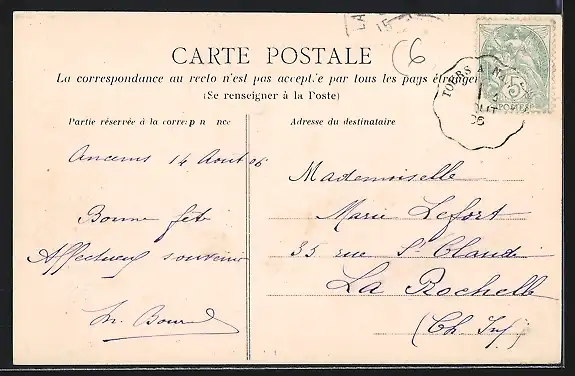 CARTE POSTALE
La correspondance au recto n'est pas acceptée par tous les pays étrangers
(Se renseigner à la Poste)
Partie réservée à la corresp n nce
Adresse du destinataire
Ancenis 14 Août 06
Bonne fête
Affectueux souvenir
Mademoiselle
Marie Lefort
35 rue St Claude
La Rochelle
(Ch Inf)
6
TOURS A
5
POSTES
06
LA
15